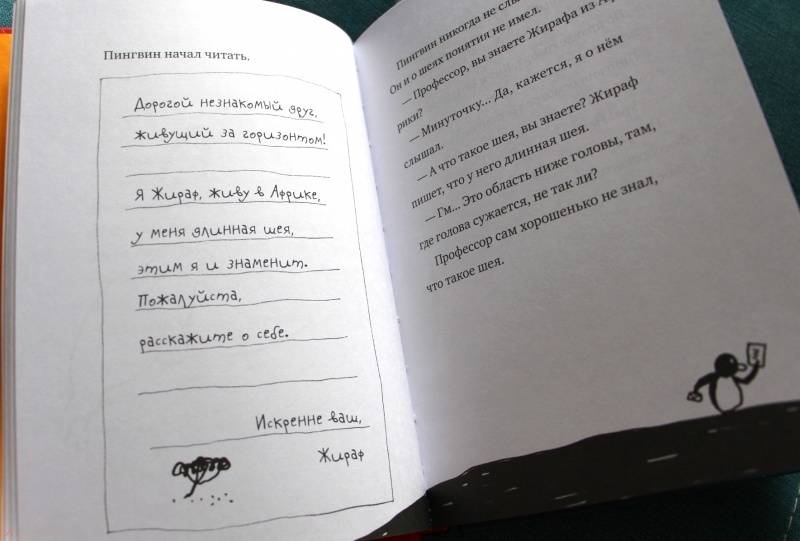 Пингвин начал читать.
Дорогой незнакомый друг,
живущий за горизонтом!
Я Жираф, живу в Африке,
у меня длинная шея,
этим я и знаменит.
Пожалуйста,
расскажите о себе.
Искренне ваш,
Жираф
Пингвин никогда не
Он и о шеях понятия не имел.
— Профессор, вы знаете Жирафа из
рики?
— Минуточку... Да, кажется, я о нём
слышал.
— А что такое шея, вы знаете? Жираф
пишет, что у него длинная шея.
— Гм... Это область ниже головы, там,
где голова сужается, не так ли?
Профессор сам хорошенько не знал,
что такое шея.